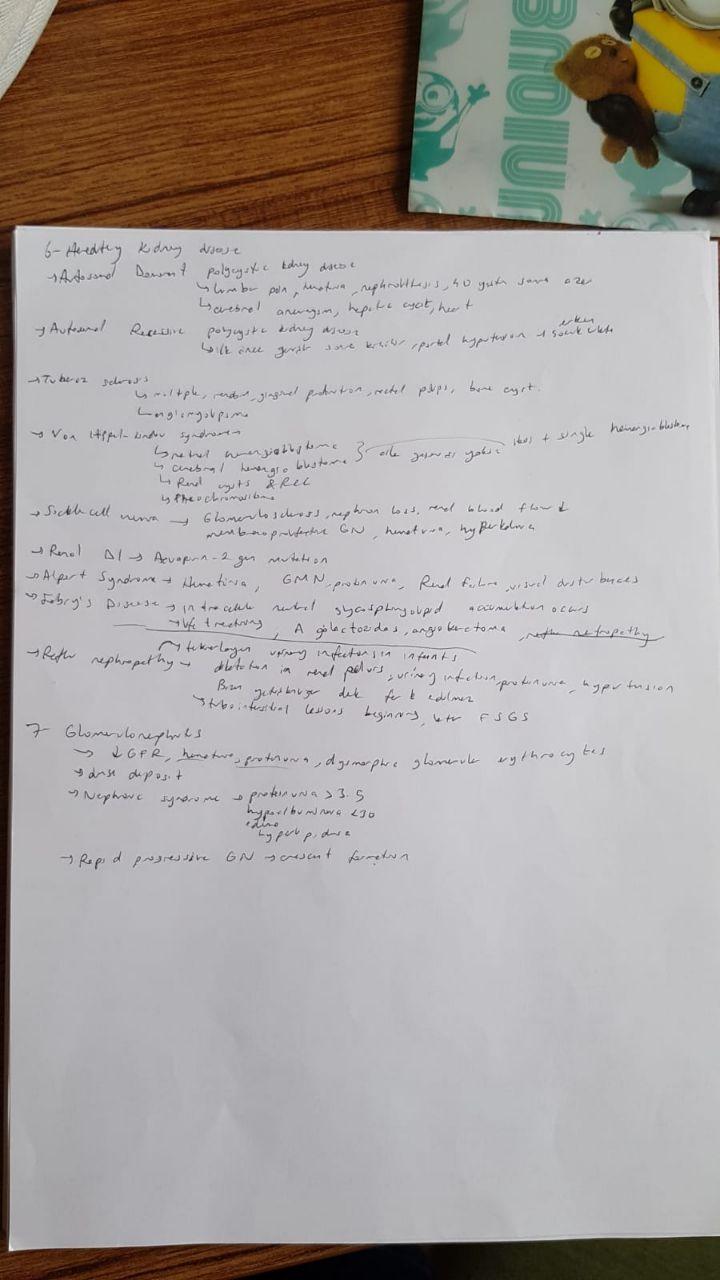 MINIONS
6- Heredity kidney disease
→ Autosomal Domınant polycystic kidney disease
↳ lumbar pain, hematuria, nephrolithesis, 40 yaştan sonra
↳ cerebral anevrysm, hepatic cyst, heart
→ Autosomal Recessive polycystic kidney disease
erken
↳ ilk önce sonra portal hypertension
→ Tuberoz sclerosis
↳ multiple, gingival rectal polyps, bone cyst.
↳ angiomyolipoma
→ Von Hippel-Lindau syndrome
↳ retinal hemangioblastome } aile + single hemangioblastome
↳ cerebral hemangioblastome
↳ Renal cysts & RCC
↳ Pheochromositoma
→ Sickle cell → Glomerulosclerosis, nephron loss, renal blood flow ↓
membranoproliferative GN, hematuria, hyperkalemia
→ Renal DI → Aquaporin-2 gen mutation
→ Alport Syndrome → Hematuria, GMN, proteinuria, Renal failure, visual disturbances
→ Fabry's Disease → intracellular neutral glycosphingolipid accumulation occurs
A galactozidas, angiokeratoma,
→ tekrarlayan urinary infections in infants
→ Reflu nephropathy → dilatation in renal pelvis, urinary infection, proteinuria, hypertension
↳ tubointerstitial lesions beginning, later FSGS
7- Glomerulonephritis
→ ↓GFR, hematuria, proteinuria, dysmorphic glomerular erythrocytes
→ dense deposit
→ Nephrotic syndrome → proteinuria > 3.5
hypoalbuminemia <30
edema
hyperlipidemia
→ Rapid progressive GN → crescent formation